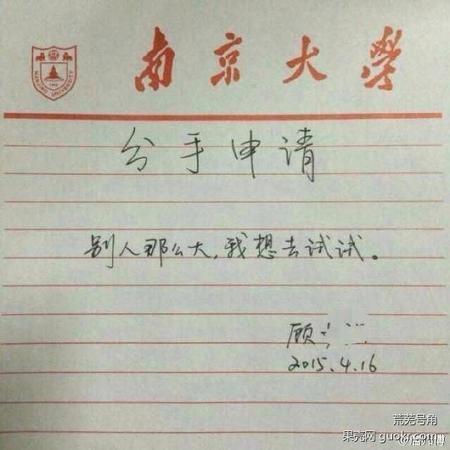 南京大學
分手申请
别人那么大,我想去试试。
顾
2015.4.16
荒芜号角
果壳网 guokr.com